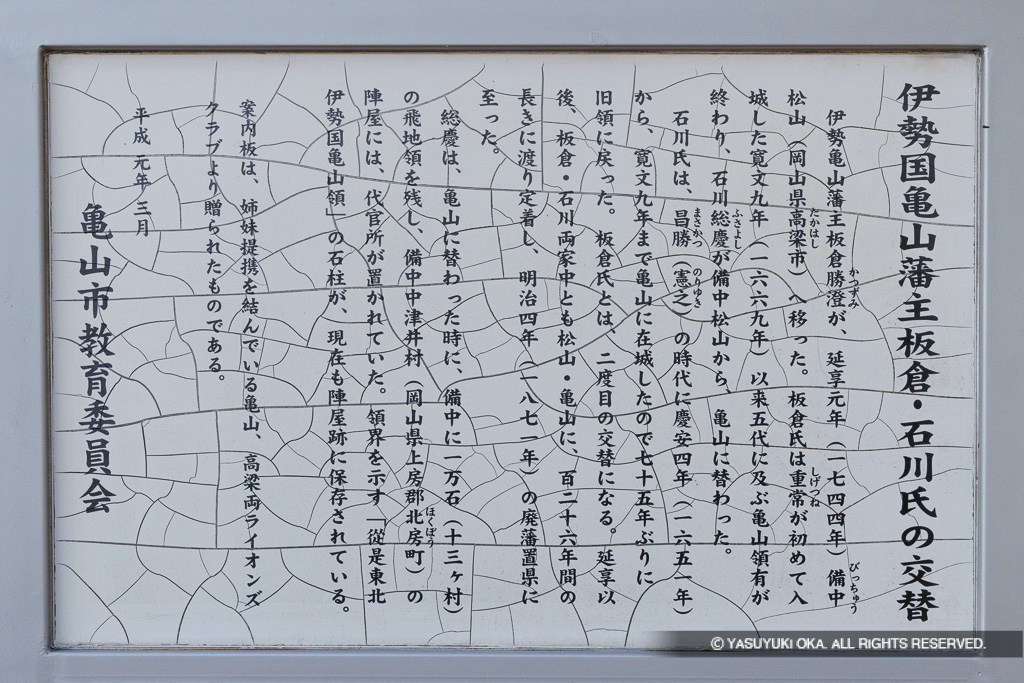 伊勢国亀山藩主板倉・石川氏の交替
伊勢亀山藩主板倉勝澄が、延享元年（一七四四年）備中
かつずみ
びっちゅう
松山（岡山県高梁市）へ移った。板倉氏は重常が初めて入
たかはし
しげつね
城した寛文九年（一六六九年）以来五代に及ぶ亀山領有が
終わり、石川総慶が備中松山から、亀山に替わった。
ふさよし
石川氏は、昌勝（憲之）の時代に慶安四年（一六五一年）
まさかつ
のりゆき
から、寛文九年まで亀山に在城したので七十五年ぶりに
旧領に戻った。板倉氏とは、二度目の交替になる。延享以
後、板倉・石川両家中とも松山・亀山に、百二十六年間の
長きに渡り定着し、明治四年（一八七一年）の廃藩置県に
至った。
総慶は、亀山に替わった時に、備中に一万石（十三ヶ村）
の飛地領を残し、備中中津井村（岡山県上房郡北房町）の
ほくぼう
陣屋には、代官所が置かれていた。領界を示す「従是東北
伊勢国亀山領」の石柱が、現在も陣屋跡に保存されている。
案内板は、姉妹提携を結んでいる亀山、高梁両ライオンズ
クラブより贈られたものである。
平成元年三月
亀山市教育委員会
© YASUYUKI OKA. ALL RIGHTS RESERVED.